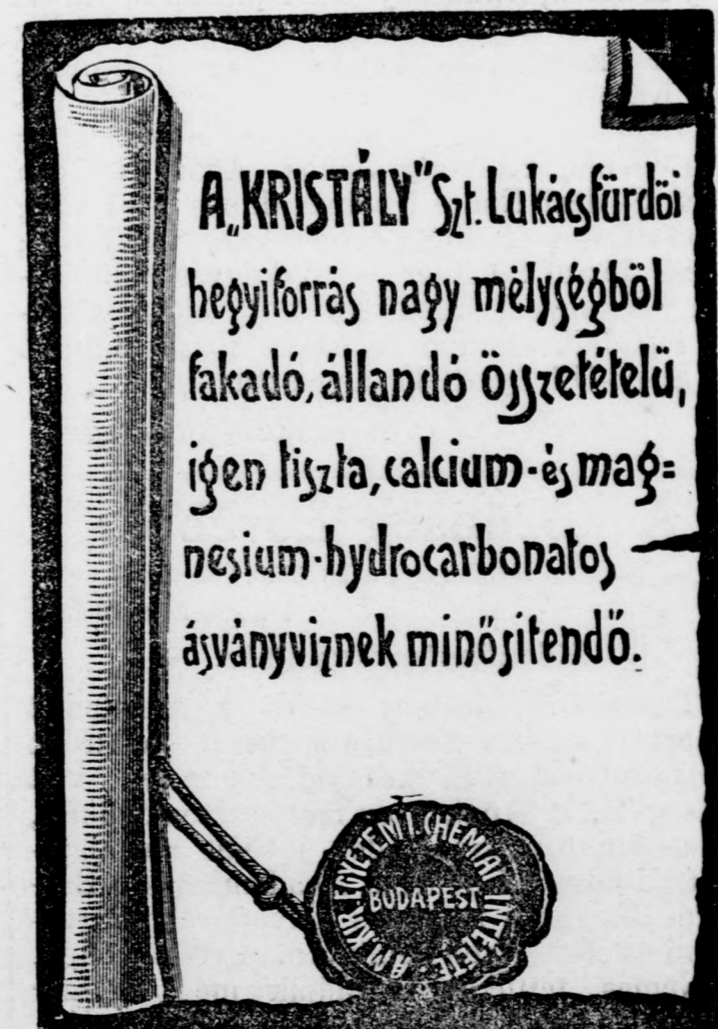 A „KRISTÁLY" Szt. Lukácsfürdöi
hegyiforrás nagy mélységböl
fakadó, állandó összetételü,
igen tiszta, calcium-és mag=
nesium-hydrocarbonatos
ásványviznek minősitendő.
A M. KIR. EGYETEM I. CHÉMIAI INTÉZETE.
BUDAPEST